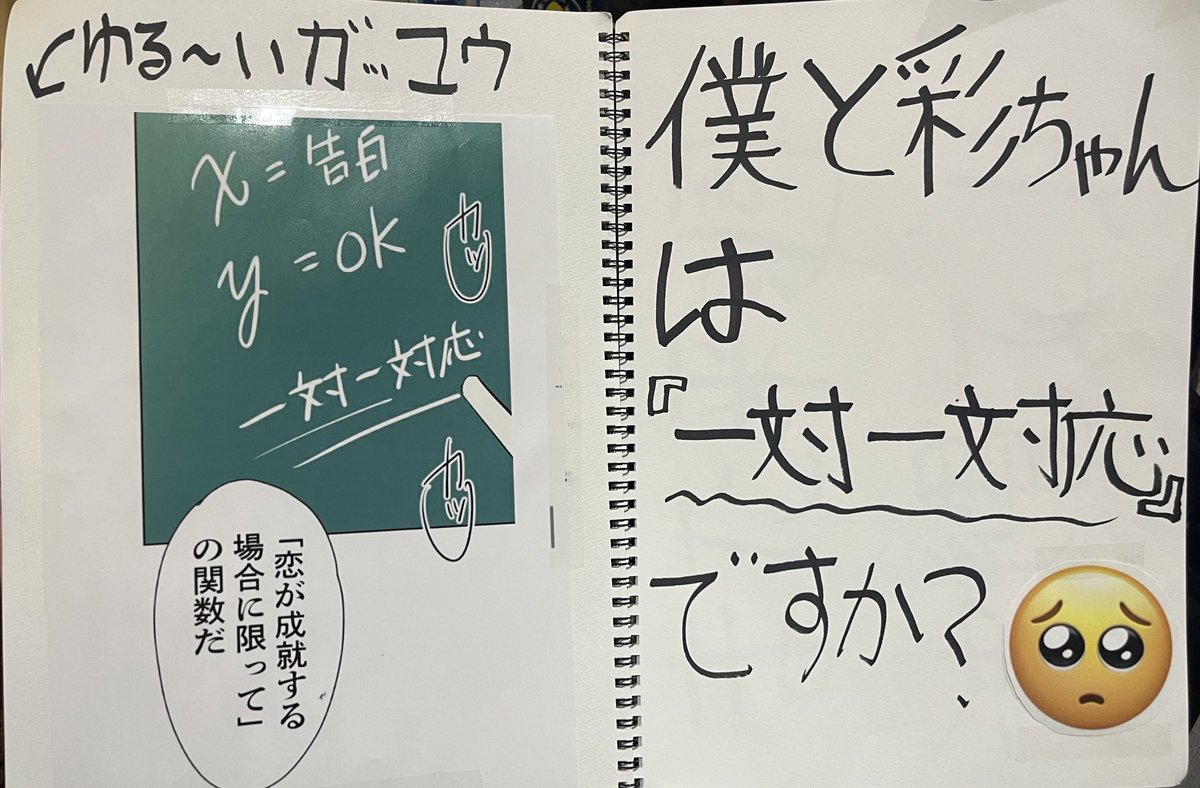 ↙ゆる～いガッコウ
x=告白
y=OK
カッ
一対一対応
カッ
「恋が成就する
場合に限って」
の関数だ
僕と彩ちゃん
は
『一対一対応』
ですか?